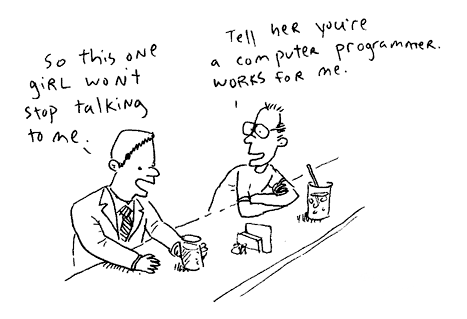 So this one
giRL won't
stop talking
to me.
Tell her you're
a computer programmer.
works for me.